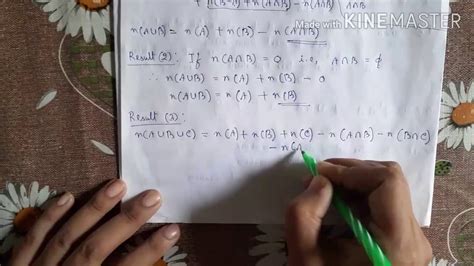 n(B-A) + n(A∩B) - n(A∩B)
Made with KINEMASTER
n(A∪B) = n(A) + n(B) - n(A∩B)
Result (2) : If n(A∩B) = 0 i.e, A∩B = ϕ
∴ n(A∪B) = n(A) + n(B) - 0
n(A∪B) = n(A) + n(B)
Result (3) :
n(A∪B∪C) = n(A) + n(B) + n(C) - n(A∩B) - n(B∩C)
- n(A